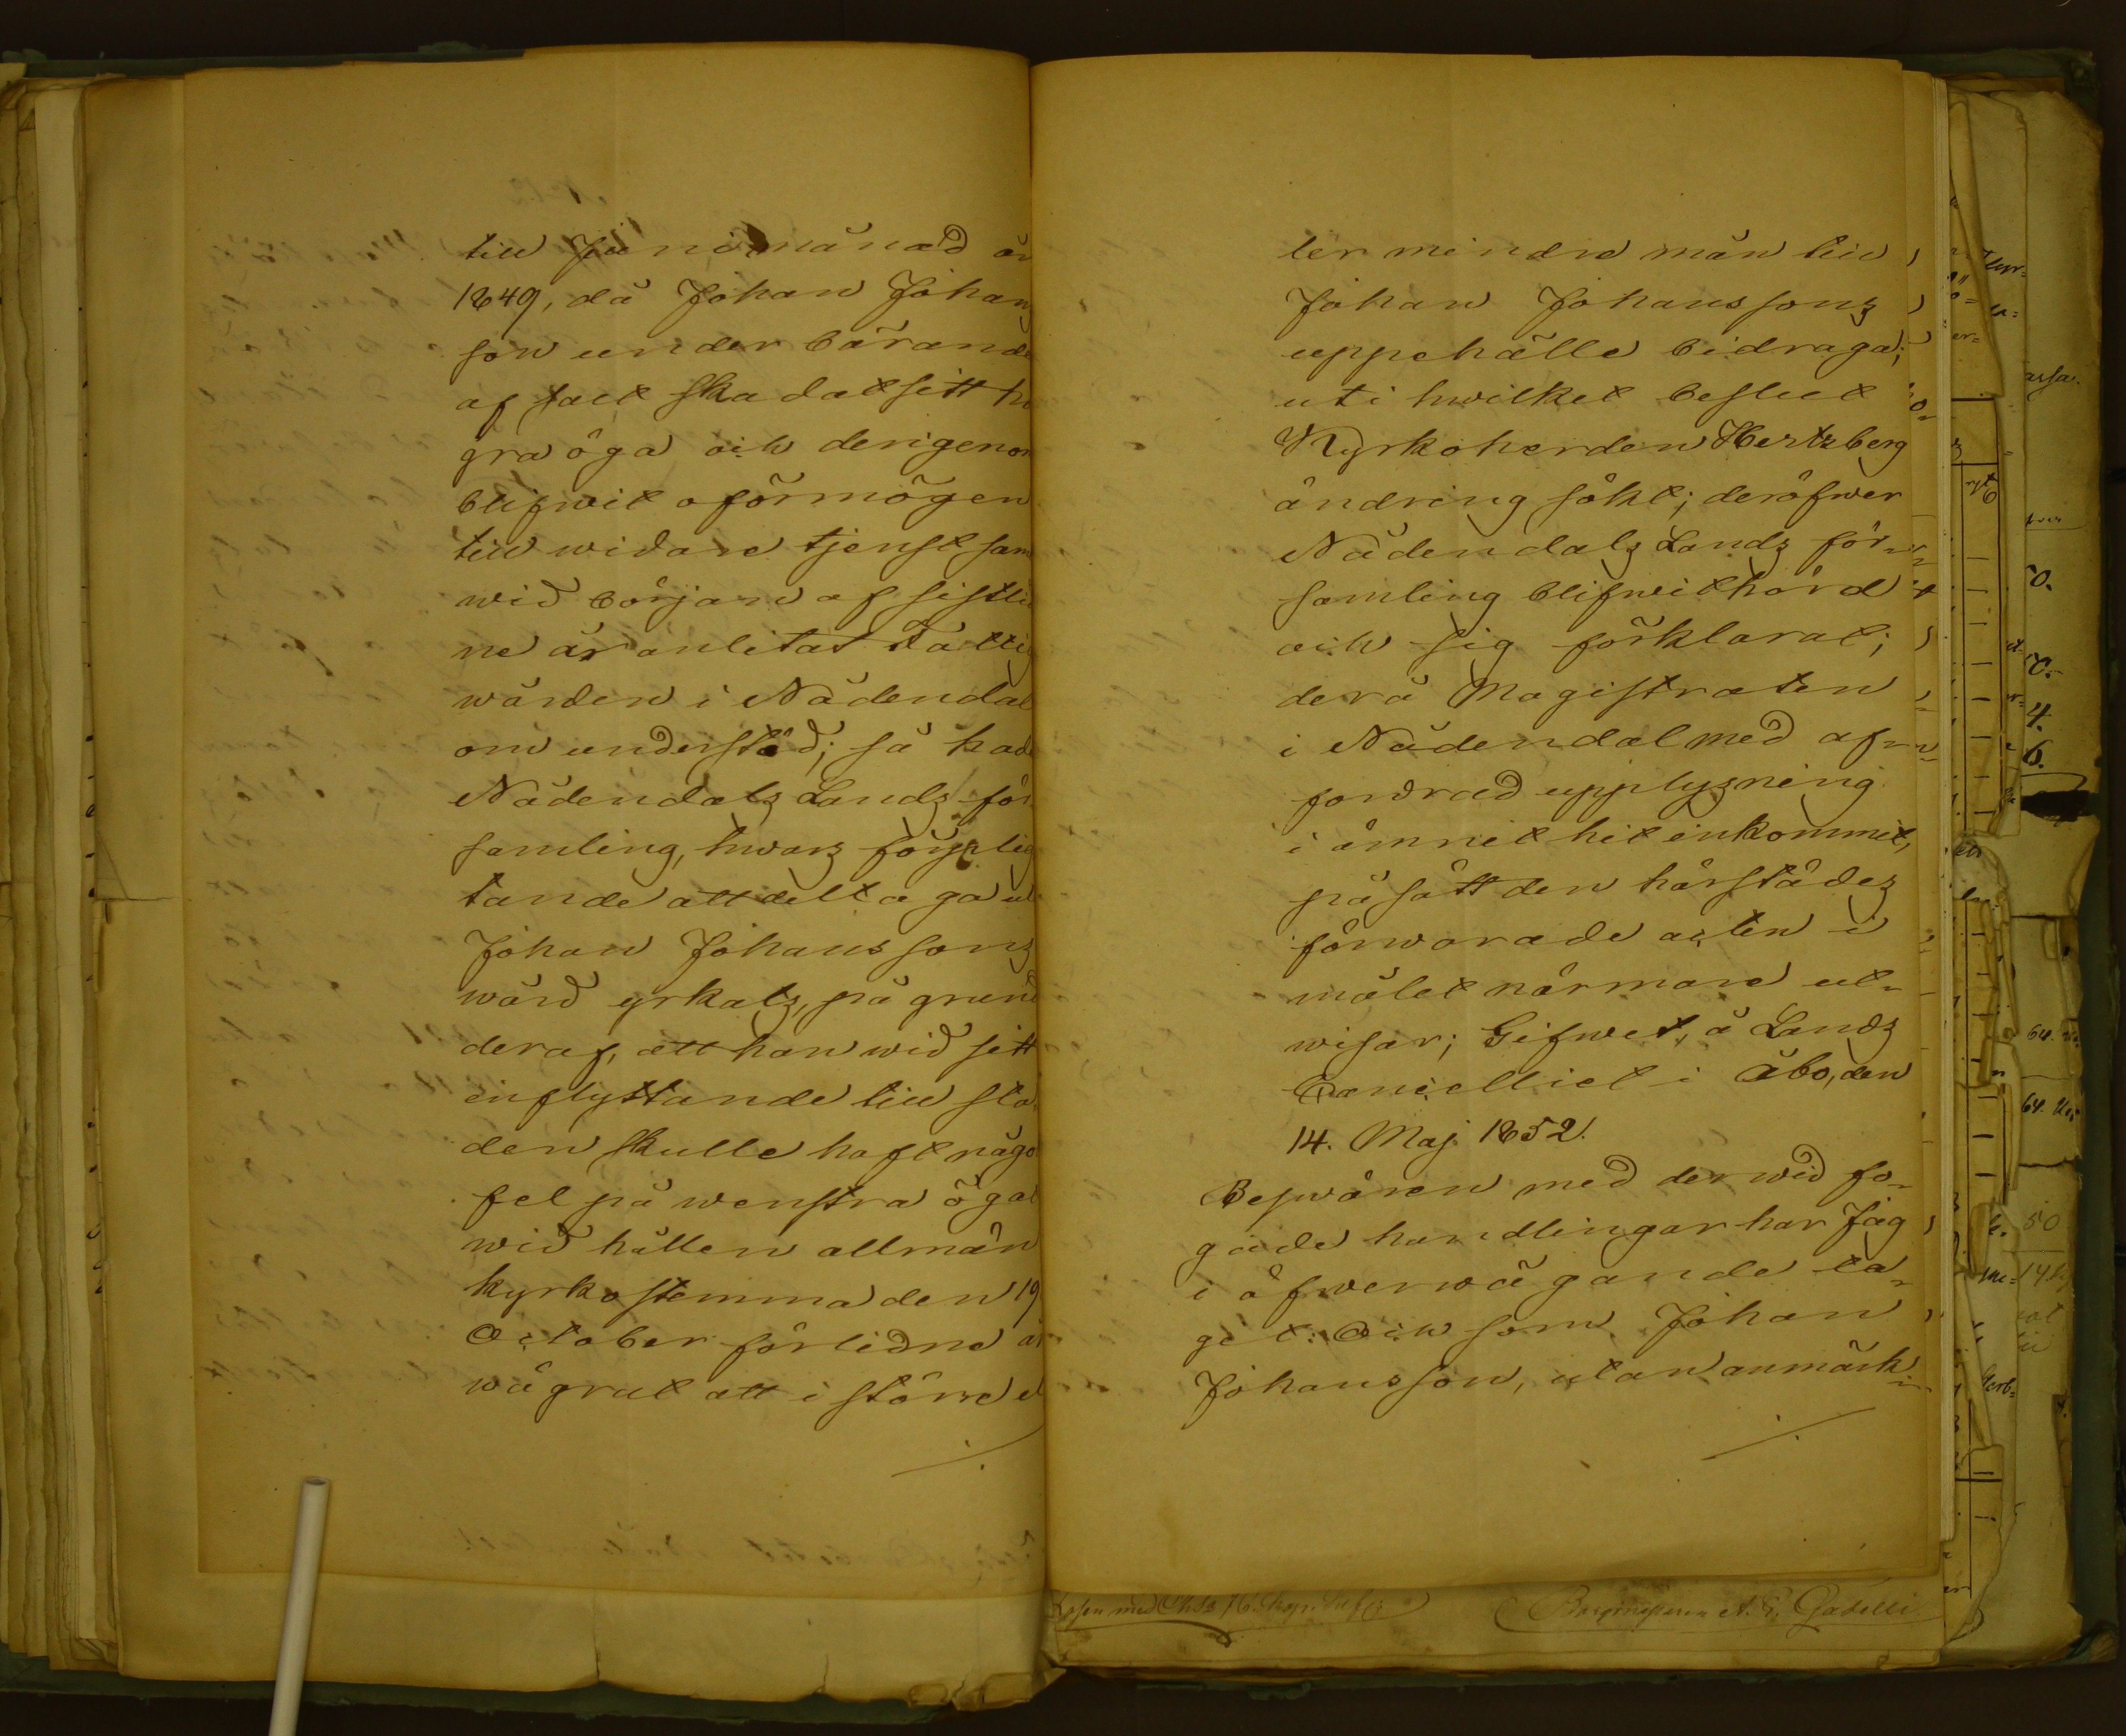 till Junimånad år
1849, då Johan Johans
son under bärande
af salt skadat sitt hö
gra öga och derigenom
blifwit oförmögen
till widare tjenst samt
wid början af sistlid
ne år anlitat Fattig
wården i Nådendal
om understöd; så hade
Nådendals Lands för
samling, hwars förplig
tande att deltaga uti
Johan Johanssons
wård yrkats, på grund
deraf, att han wid sitt
inflyttande till sta
den skulle haft någo
fel på wenstra ögat
wid hållen allmän
kyrkostemma den 19
October förlidne år
wägrat att i större el
./.
ler mindre mån till
Johan Johanssons
uppehälle bidraga;
uti hwilket beslut
Kyrkoherden Hertzberg
ändring sökt; deröfwer
Nådendals Lands för-
samling blifwit hörd
och sig förklarat;
derå Magistraten
i Nådendal med af-
fordrad upplysning
i ämnet hit inkommit,
på sätt den härstädes
förwarade acten i
målet närmare ut-
wisar; Gifwet, å Lands
Cancelliet i Åbo, den
14. Maj 1852.
Beswären med derwid fo-
gade handlingar har Jag
i öfwerwägande ta-
git: Och som Johan
Johansson, utan anmärk-
./.